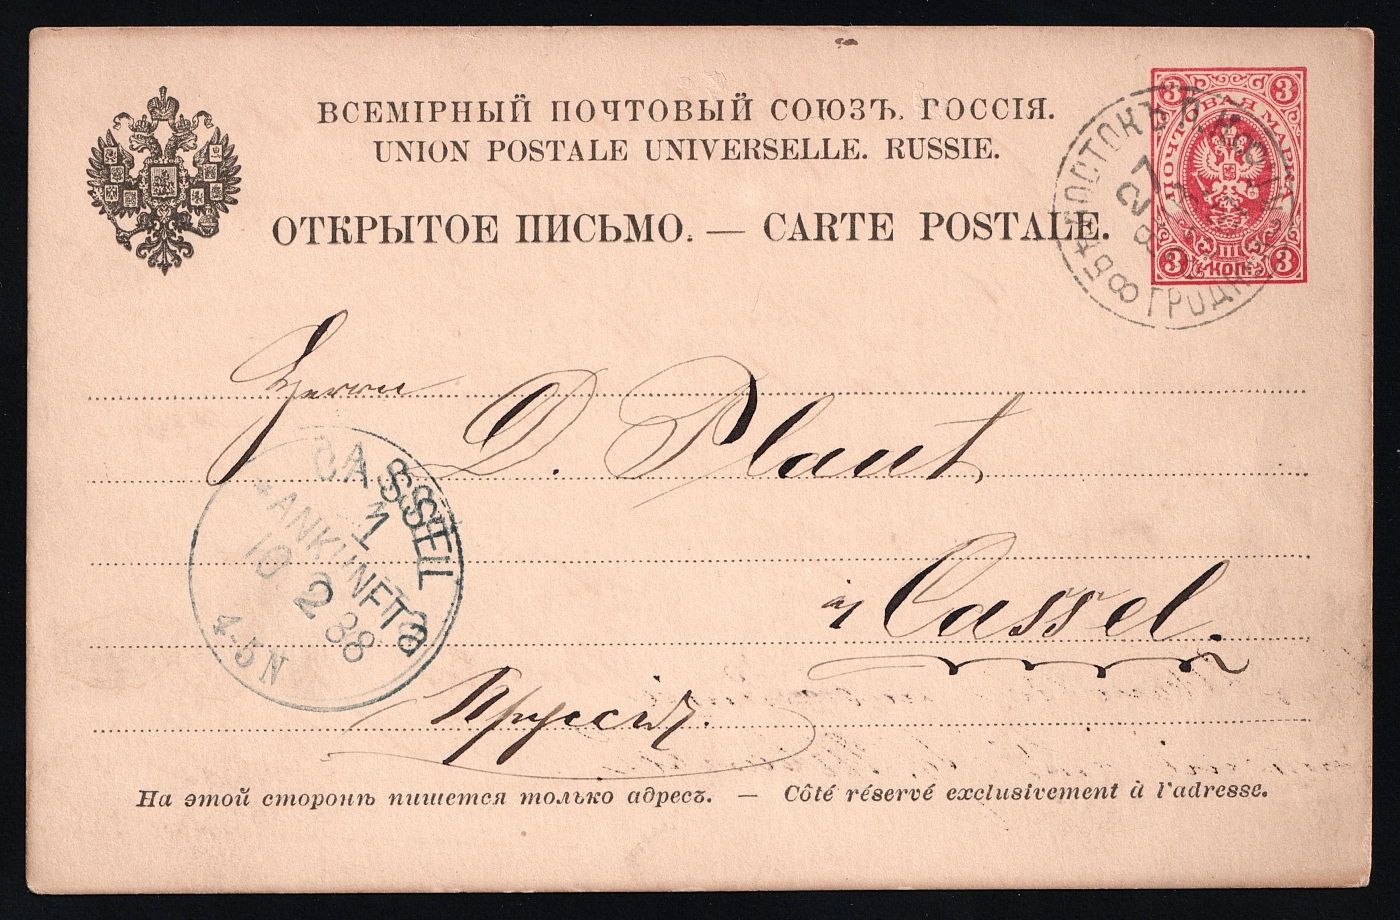 ВСЕМІРНЫЙ ПОЧТОВЫЙ СОЮЗЪ. РОССІЯ.
UNION POSTALE UNIVERSELLE. RUSSIE.
ОТКРЫТОЕ ПИСЬМО. — CARTE POSTALE.
3 3
ПОЧТОВАЯ МАРКА
III
3 КОП. 3
27
ГРОДН
Herrn
D. Plaut
Cassel.
Пруссія.
CASSEL
1
ANKUNFT
10 2 88
4-5N
На этой сторонѣ пишется только адресъ. — Côté réservé exclusivement à l'adresse.